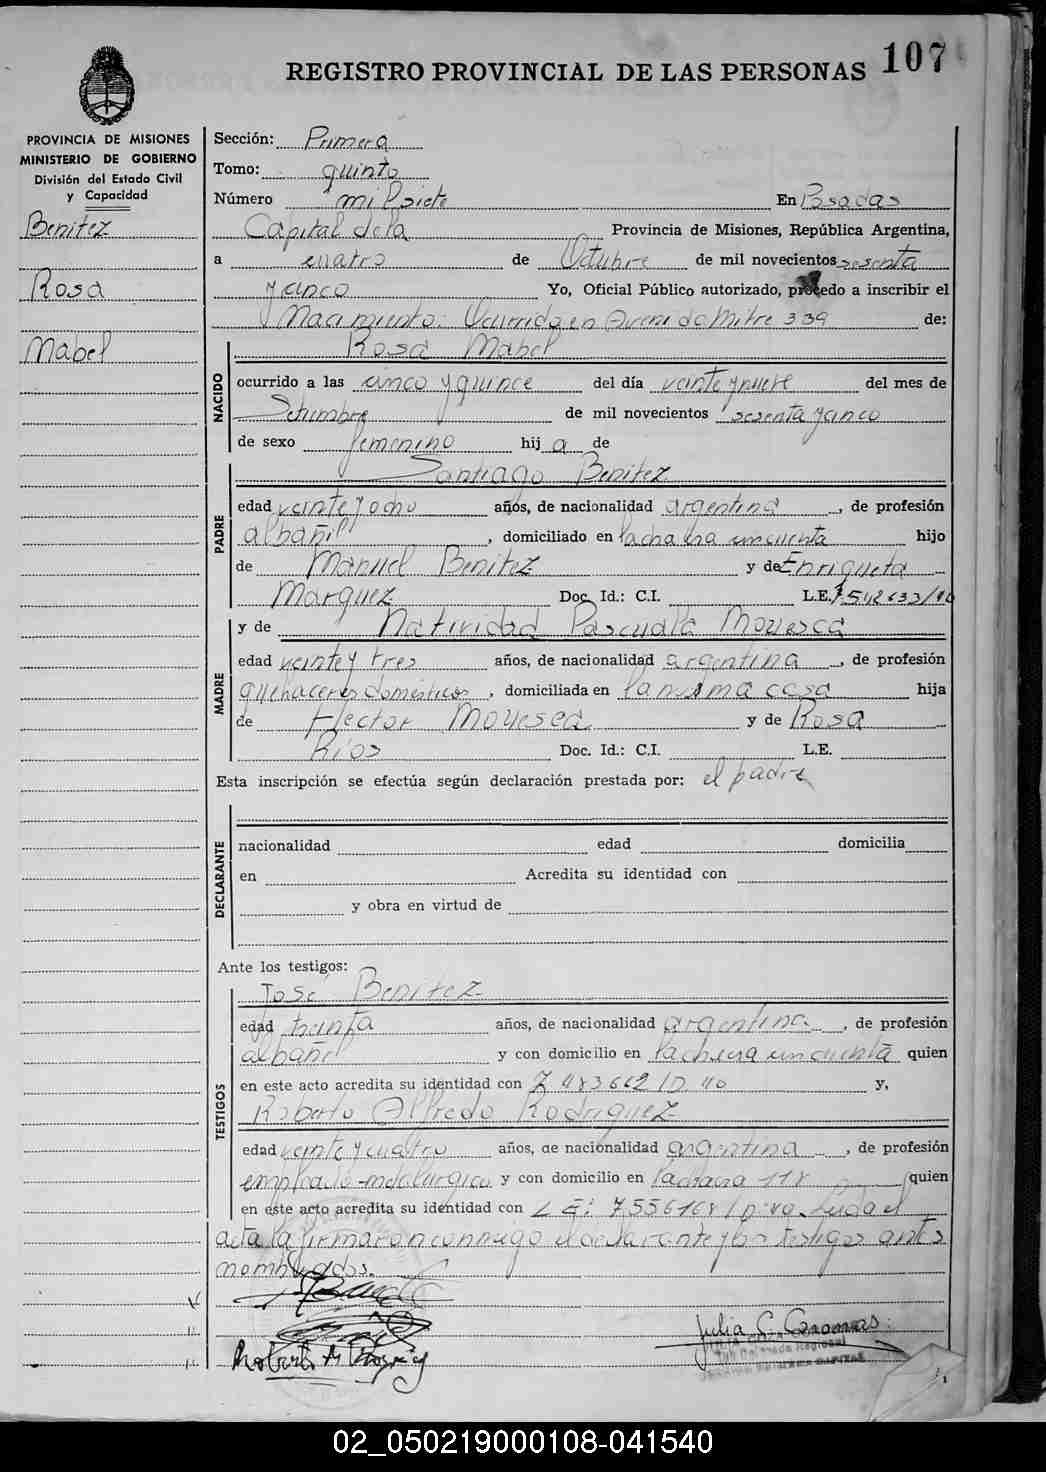 107
REGISTRO PROVINCIAL DE LAS PERSONAS
PROVINCIA DE MISIONES
MINISTERIO DE GOBIERNO
División del Estado Civil
y Capacidad
Benitez
Rosa
Mabel
Sección: Primera
Tomo: quinto
Número mil siete En Posadas
Capital de la Provincia de Misiones, República Argentina,
a cuatro de Octubre de mil novecientos sesenta
y cinco Yo, Oficial Público autorizado, procedo a inscribir el
Nacimiento: Ocurrido en Avenida Mitre 339 de:
Rosa Mabel
NACIDO
ocurrido a las cinco y quince del día veinte y nueve del mes de
Setiembre de mil novecientos sesenta y cinco
de sexo femenino hij a de
Santiago Benitez
PADRE
edad veinte y ocho años, de nacionalidad argentina, de profesión
albañil, domiciliado en la chacra cincuenta hijo
de Manuel Benitez y de Enriqueta
Marquez Doc. Id.: C.I. L.E.
y de Natividad Pascuala Movesca
MADRE
edad veinte y tres años, de nacionalidad argentina, de profesión
quehaceres domésticos, domiciliada en la misma casa hija
de Hector Movesca y de Rosa
Rios Doc. Id.: C.I. L.E.
Esta inscripción se efectúa según declaración prestada por: el padre
DECLARANTE
nacionalidad edad domicilia
en Acredita su identidad con
y obra en virtud de
Ante los testigos:
José Benitez
TESTIGOS
edad treinta años, de nacionalidad argentina, de profesión
albañil y con domicilio en la chacra cincuenta quien
en este acto acredita su identidad con 7 483662 y,
Roberto Alfredo Rodriguez
edad veinte y cuatro años, de nacionalidad argentina, de profesión
empleado metalúrgico y con domicilio en la chacra 118 quien
en este acto acredita su identidad con L E: Leida el
acta la firmaron conmigo el declarante y los testigos antes
nombrados.
Julia C.
02_050219000108-041540